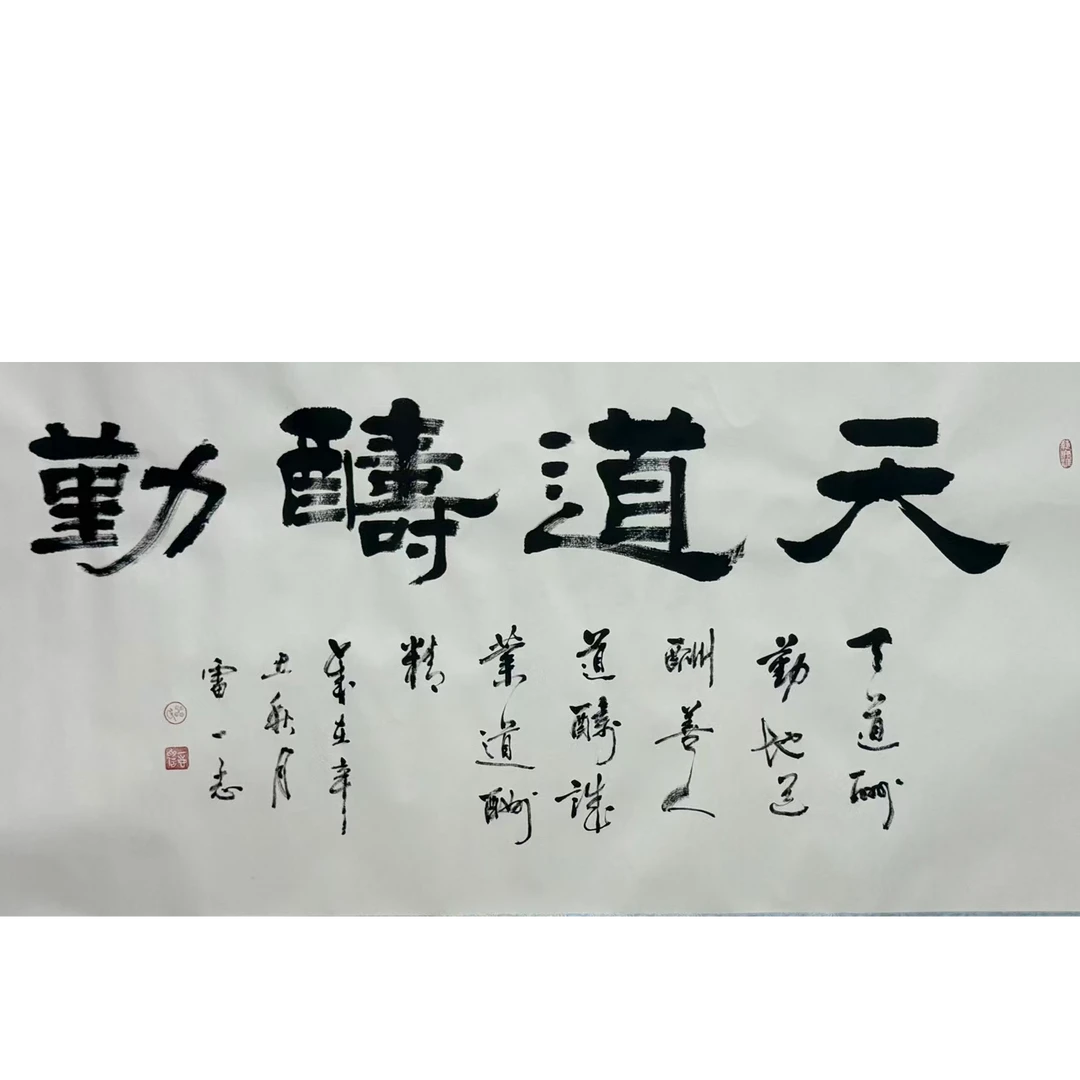 天道醻勤
天道酬
勤地道
酬善人
道醻誠
業道酬
精
歲在辛
丑秋月
雷一